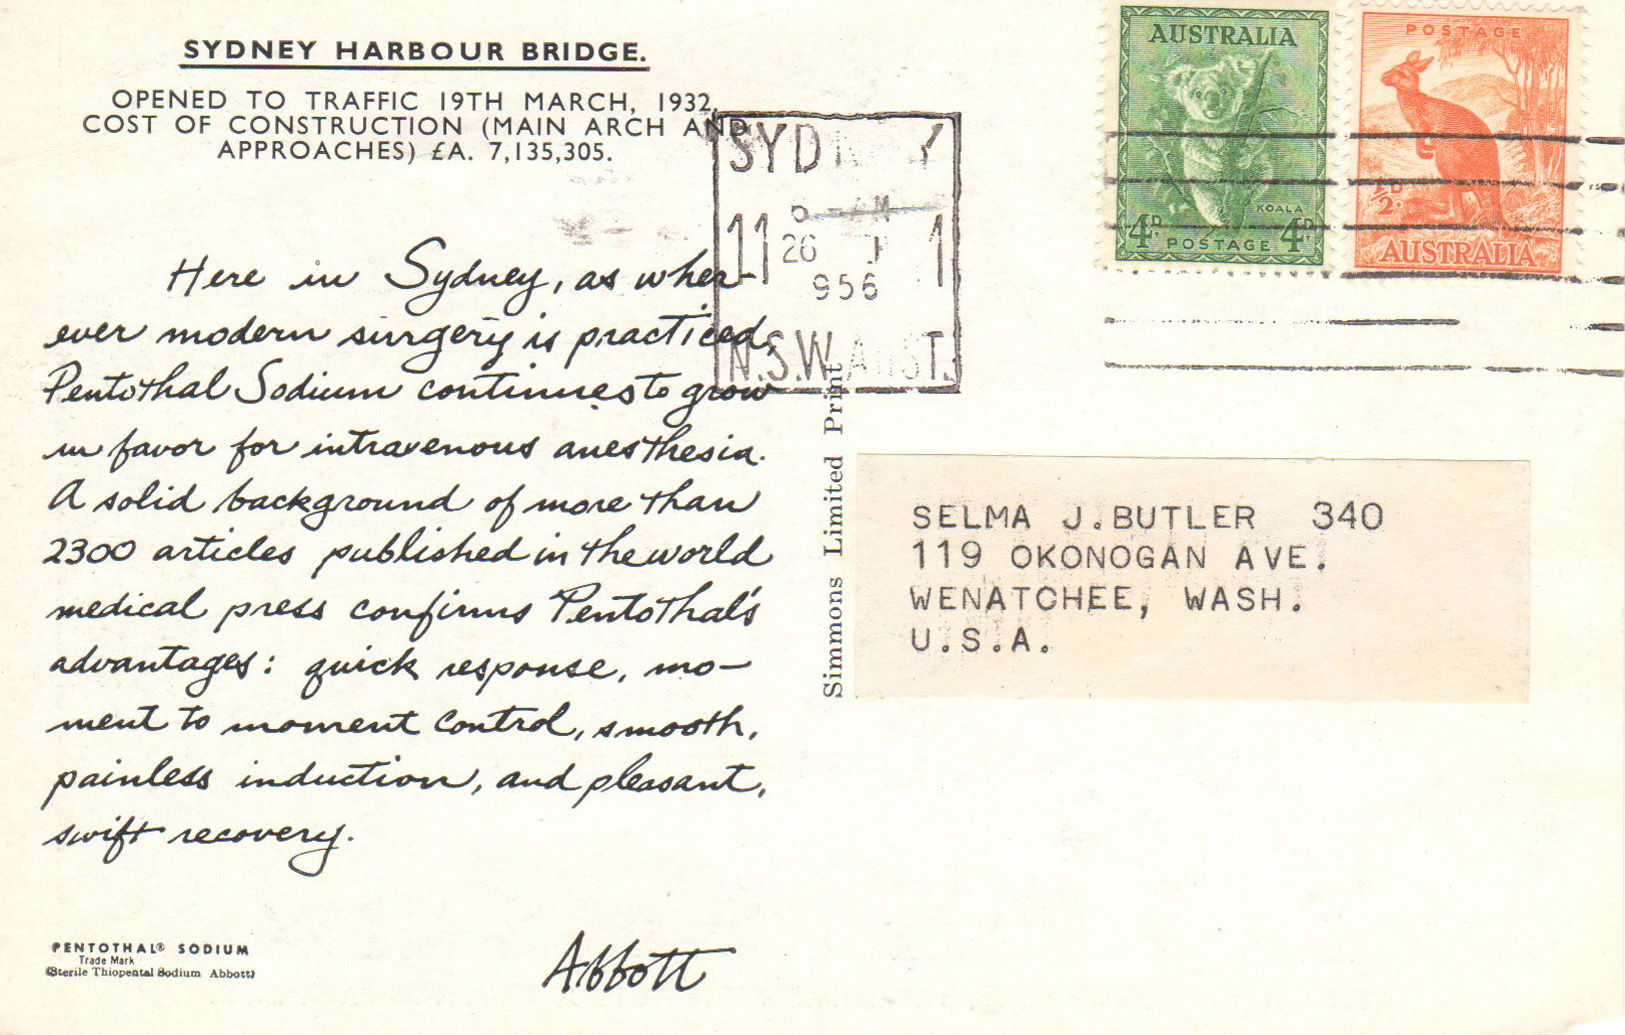 SYDNEY HARBOUR BRIDGE.
OPENED TO TRAFFIC 19TH MARCH, 1932.
COST OF CONSTRUCTION (MAIN ARCH AND
APPROACHES) £A. 7,135,305.
Here in Sydney, as wher-
ever modern surgery is practiced,
Pentothal Sodium continues to grow
in favor for intravenous anesthesia.
A solid background of more than
2300 articles published in the world
medical press confirms Pentothal's
advantages: quick response, mo-
ment to moment control, smooth,
painless induction, and pleasant,
swift recovery.
Abbott
PENTOTHAL® SODIUM
Trade Mark
(Sterile Thiopental Sodium Abbott)
Simmons Limited Print
SYDNEY
11 26 1
956
N.S.W. AUST.
AUSTRALIA
KOALA
4D. POSTAGE 4D.
POSTAGE
1/2D.
AUSTRALIA
SELMA J.BUTLER 340
119 OKONOGAN AVE.
WENATCHEE, WASH.
U.S.A.